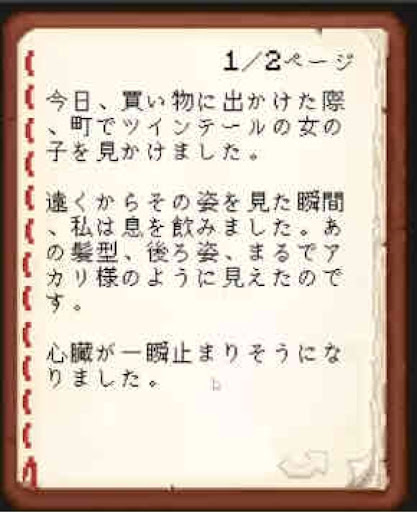 1／2ページ
今日、買い物に出かけた際
、町でツインテールの女の
子を見かけました。
遠くからその姿を見た瞬間
、私は息を飲みました。あ
の髪型、後ろ姿、まるでア
カリ様のように見えたので
す。
心臓が一瞬止まりそうにな
りました。